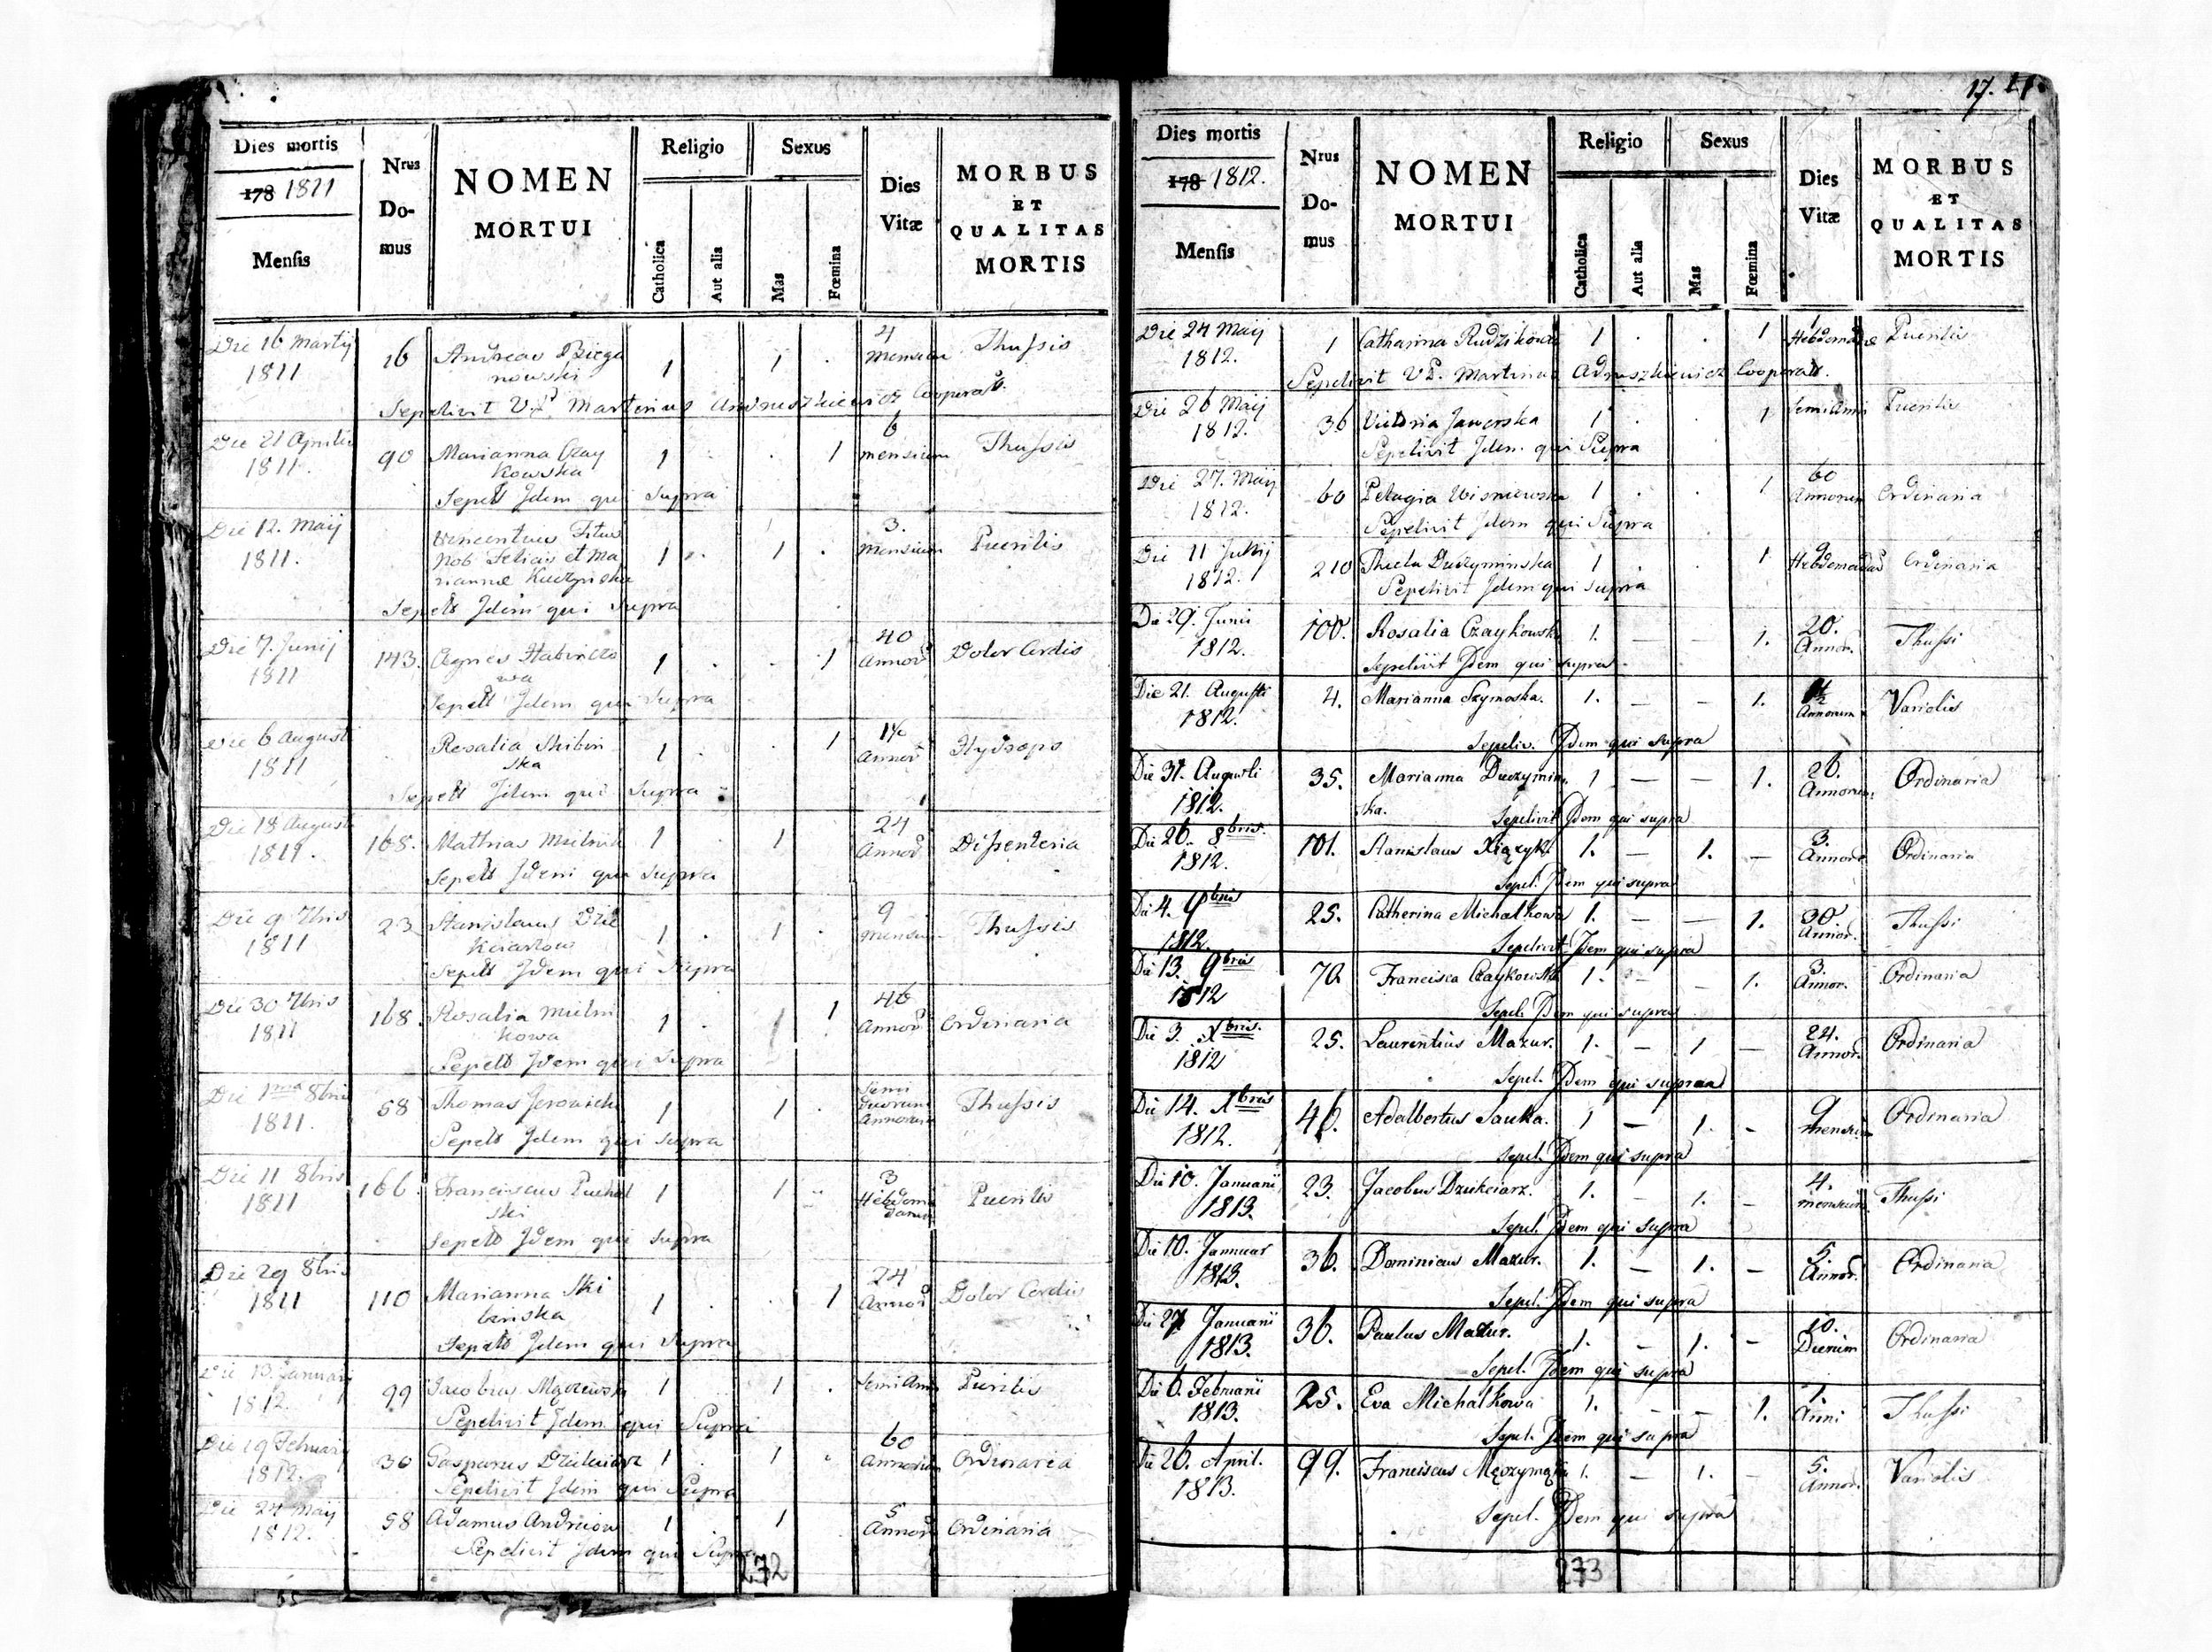 Dies mortis
178 1811
Mensis
Nrus
Do-
mus
NOMEN
MORTUI
Religio
Catholica
Aut alia
Sexus
Mas
Fœmina
Dies
Vitæ
MORBUS
ET
QUALITAS
MORTIS
Die 16 Martij 16 Andreas Biega 1 . 1 . 4 Thussis
1811 nowski Mensium
Sepelivit V.D. Martinus Andruszkiewicz Cooperat.
Die 21 Aprilis 90 Marianna Czay 1 . . 1 6 Thussis
1811. kowska mensium
Sepelt Idem qui Supra
Die 12. Maij Vincentius Titus 3.
1811. Nob Felicis et Ma 1 . 1 . Mensium Puerilis
riannæ
Sepelt Idem qui Supra
Die 7. Junij 143. Agnes 1 . . 1 40 Dolor Cordis
1811 Annor
Sepelt Idem qui Supra
Die 6 Augusti Rosalia Skibin 1 . . 1 Hydrops
1811 ska Annor
Sepelt Idem qui Supra
Die 18 Augusti 168. Mathias Mielnik 1 . 1 24 Dissenteria
1811. Annor
Sepelt Idem qui Supra
Die 9 7bris 23 Stanislaus 1 . 1 . 9 Thussis
1811 Mensium
Sepelt Idem qui Supra
Die 30 7bris 168. Rosalia Mielni 1 . 1 46 Ordinaria
1811 kowa Annor
Sepelt Idem qui Supra
Die 1ma 8bris 58 Thomas 1 1 . Semi Thussis
1811. Duorum
Annorum
Sepelt Idem qui Supra
Die 11 8bris 166. Franciscus Puchal 1 1 3 Puerilis
1811 ski Hebdoma
darum
Sepelt Idem qui Supra
Die 29 8bris 110 Marianna Ski 1 . . 1 24 Dolor Cordis
1811 binska Annor
Sepelt Idem qui Supra
Die 13. Januarij 99 Jacobus 1 1 . Semi Anni Puerilis
1812.
Sepelivit Idem qui Supra
Die 19 Februarij 30 Gasparus 1 . 1 60 Ordinaria
1812. Annorum
Sepelivit Idem qui Supra
Die 24 Maij 58 Adamus 1 . 1 5 Ordinaria
1812. Annor
Sepelivit Idem qui Supra
272
17.
Dies mortis
178 1812.
Mensis
Nrus
Do-
mus
NOMEN
MORTUI
Religio
Catholica
Aut alia
Sexus
Mas
Fœmina
Dies
Vitæ
MORBUS
ET
QUALITAS
MORTIS
Die 24 Maij 1 Catharina Rudzikowa 1 . . 1 1 Puerilis
1812. Hebdomadæ
Sepelivit V.D. Martinus Adruszkiewicz Cooperat.
Die 26 Maij 36 Victoria Jaworska 1 . . 1 Semi Anni Puerilis
1812.
Sepelivit Idem qui Supra
Die 27. Maij 60 Pelagia Wisniewska 1 . . 1 60 Ordinaria
1812. Annorum
Sepelivit Idem qui Supra
Die 11 Julij 210 Thecla Duczyminska 1 . . 1 9 Ordinaria
1812.
Sepelivit Idem qui supra
Die 29. Junii 100. Rosalia Czaykowska 1. — — 1. 20. Thussi
1812. Annor.
Sepeliit Idem qui supra
Die 21. Augusti 4. Marianna Szymoska. 1. — — 1. Variolis
1812. Annorum
Sepeliv. Idem qui supra
Die 31. Augusti 35. Marianna Duczymin 1 — — 1. 26. Ordinaria
1812. ska. Annorum
Sepelivit Idem qui supra
Die 26. 8bris. 101. Stanislaus Xiązyk 1. — 1. — 3. Ordinaria
1812. Annor
Sepel. Idem qui supra
Die 4. 9bris 25. Catherina Michalkowa 1. — — 1. 30 Thussi
1812. Annor.
Sepelivit Idem qui supra
Die 13. 9bris 70 Francisca Czaykowska 1. — — 1. 3. Ordinaria
1812 Annor.
Sepel. Idem qui supra
Die 3. Xbris. 25. Laurentius Mazur. 1. — 1 — 24. Ordinaria
1812 Annor.
Sepel. Idem qui supra
Die 14. Xbris 46. Adalbertus Sauka. 1 — 1. - 9 Ordinaria
1812. mensium
Sepel. Idem qui supra
Die 10. Januarii 23. Jacobus Dzikciarz. 1. — 1. - 4. Thussi
1813. mensium
Sepel. Idem qui supra
Die 10. Januar 36. Dominicus Mazur. 1. — 1. — 5. Ordinaria
1813. Annor.
Sepel. Idem qui supra
Die 27 Januarii 36. Paulus Mazur. 1. - 1. - 10. Ordinaria
1813. Dierum
Sepel. Idem qui supra
Die 6. Februarii 25. Eva Michalkowa 1. — — 1. 1. Thussi
1813. Anni
Sepel. Idem qui supra
Die 26. April. 99. Franciscus 1. — 1. — 5. Variolis
1813. Annor.
Sepel. Idem qui supra
273